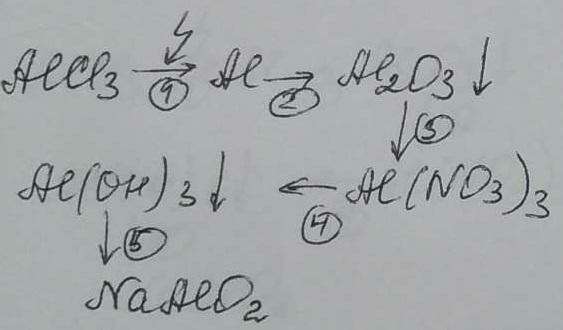 AlCl₃ →① Al →② Al₂O₃↓
↓③
Al(OH)₃↓ ←④ Al(NO₃)₃
↓⑤
NaAlO₂